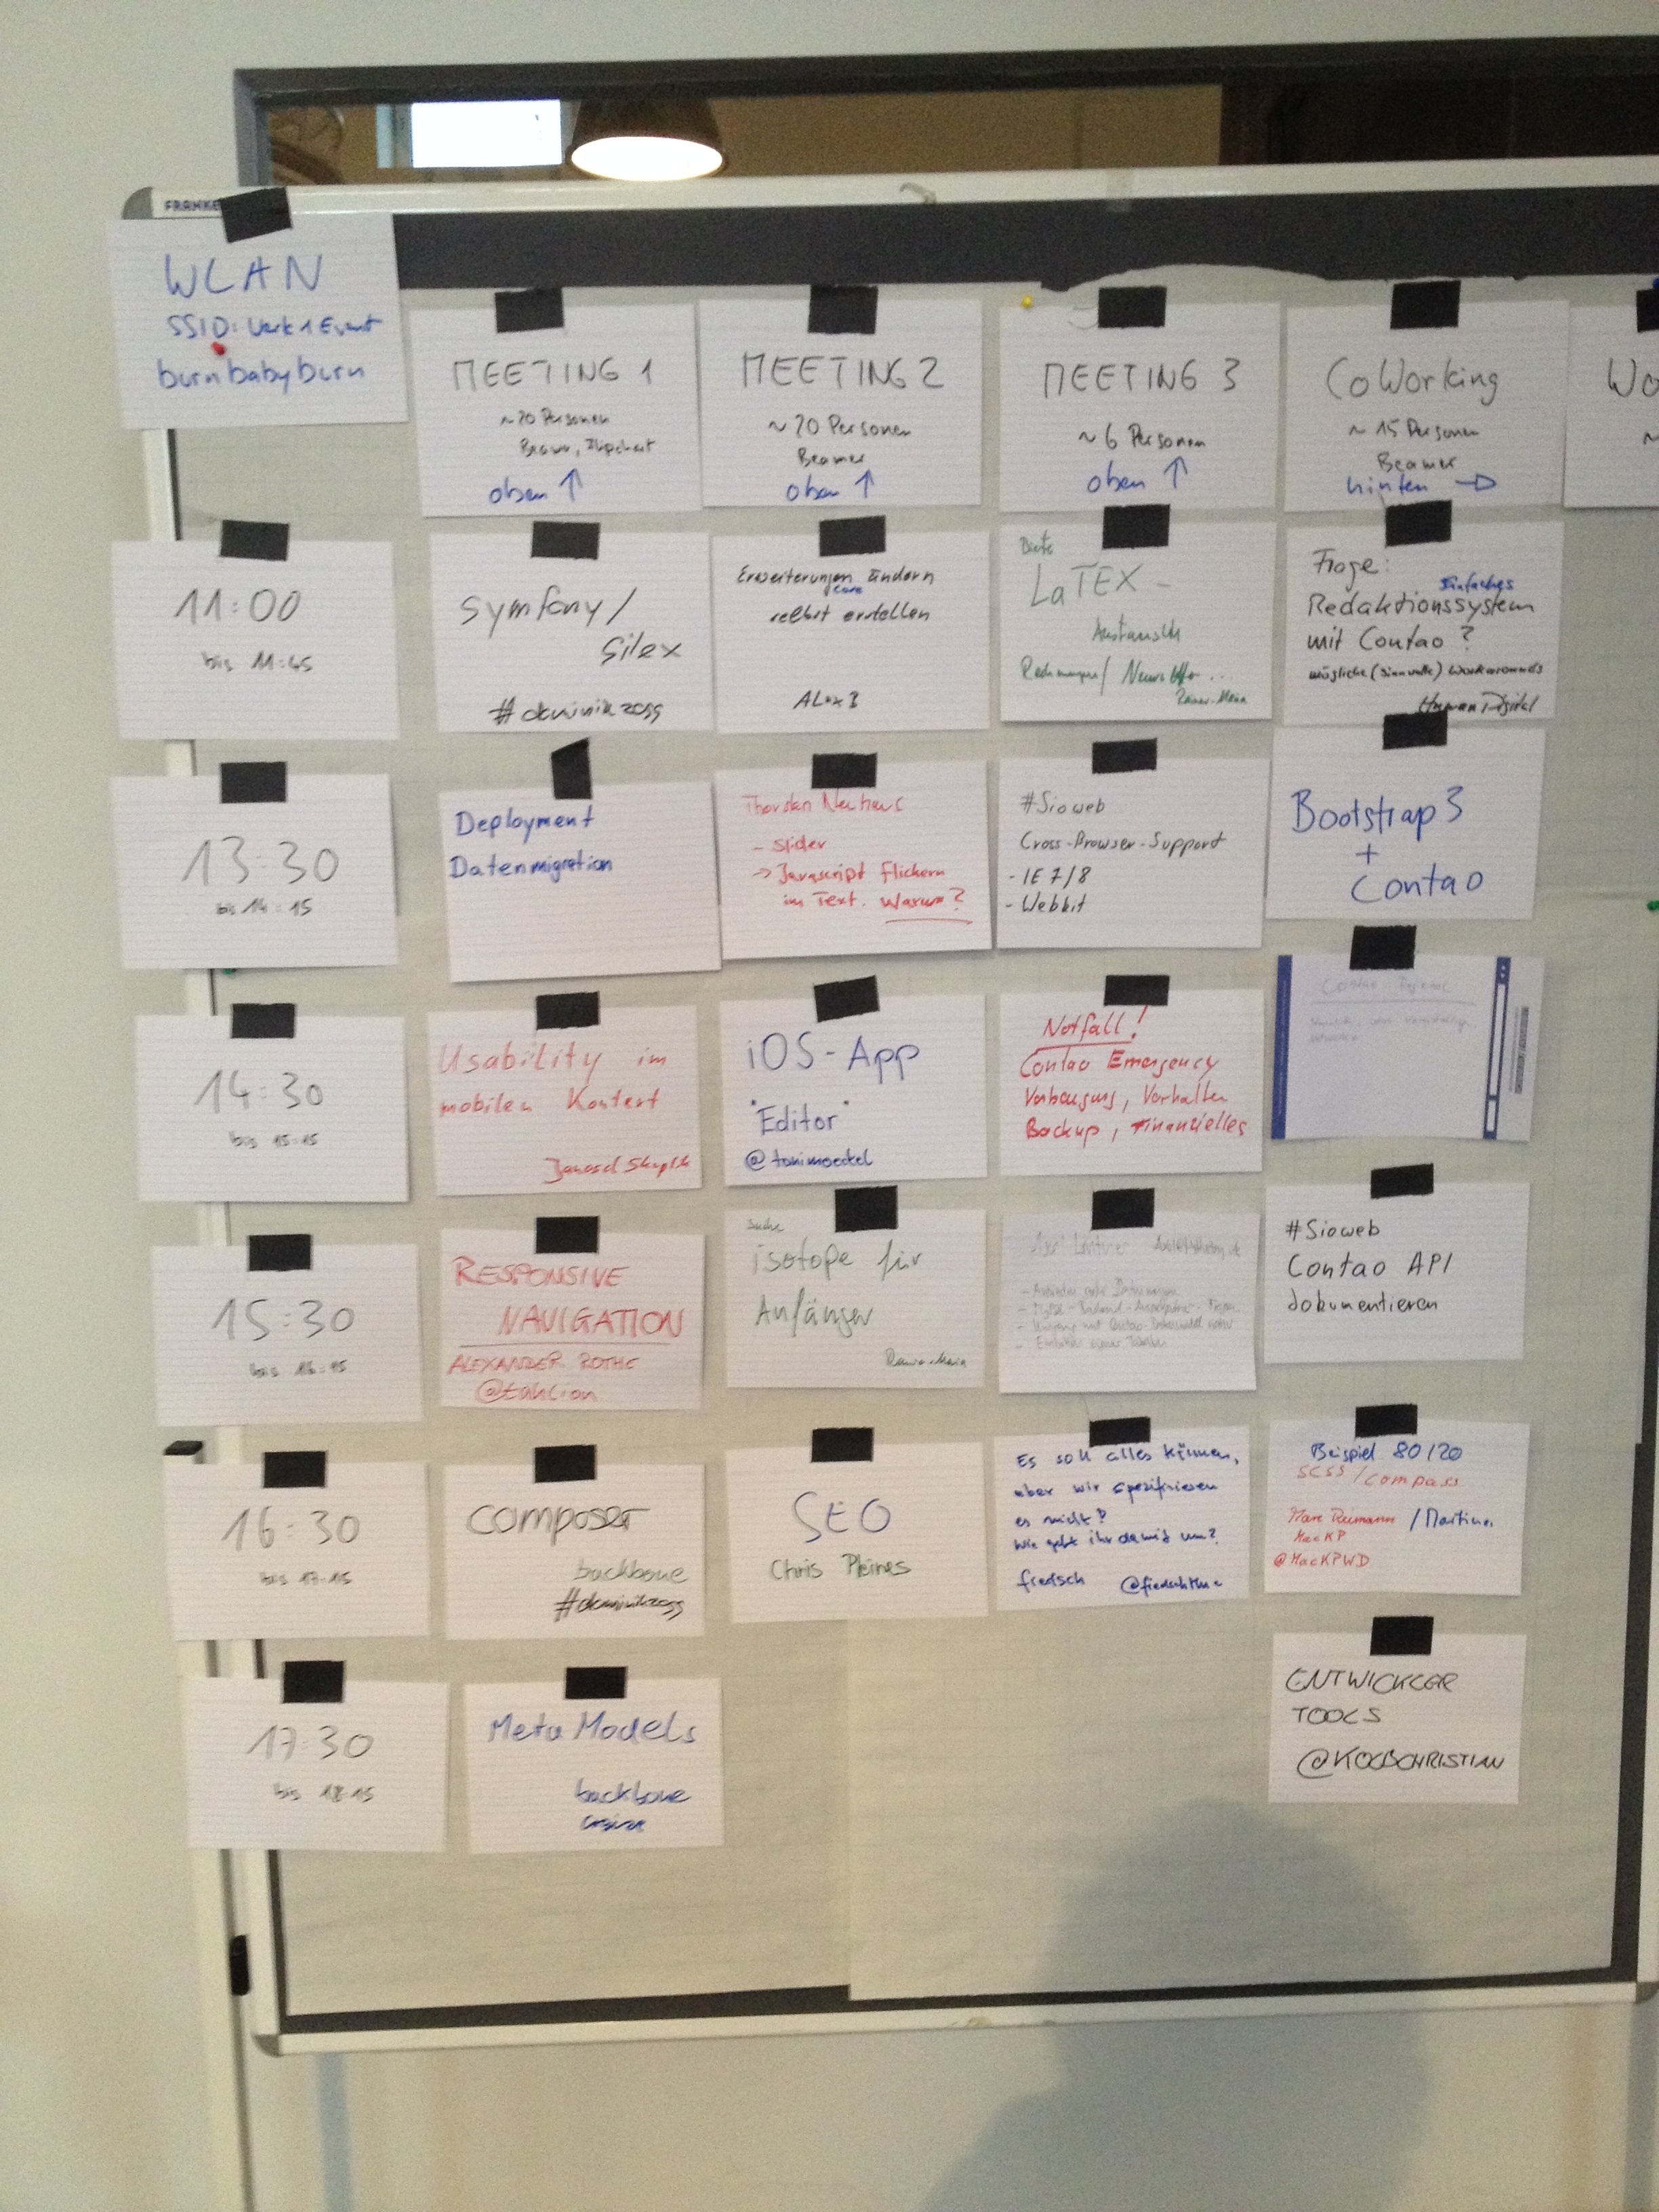 WLAN
SSID: Werk1Event
burnbabyburn
MEETING 1
~20 Personen
Beamer, Flipchart
oben ↑
MEETING 2
~20 Personen
Beamer
oben ↑
MEETING 3
~6 Personen
oben ↑
CoWorking
~15 Personen
Beamer
hinten →
Wo
~
11:00
bis 11:45
Symfony/
Silex
#dominikzogg
Erweiterungen ändern
core
selbst erstellen
Alex B
Biete
LaTEX -
Austausch
Rechnungen/ Newsletter ...
Rainer-Maria
Frage:
Einfaches
Redaktionssystem
mit Contao?
mögliche (sinnvolle) Workarounds
Human Digital
13:30
bis 14:15
Deployment
Datenmigration
Thorsten Neuhaus
- Slider
-> Javascript flickern
im Text. Warum?
#Sioweb
Cross-Browser-Support
- IE 7/8
- Webkit
Bootstrap 3
+
Contao
14:30
bis 15:15
Usability im
mobilen Kontext
iOS-App
"Editor"
@tonimoeckel
Notfall!
Contao Emergency
Vorbeugung, Verhalten
Backup, Finanzielles
Contao
15:30
bis 16:15
RESPONSIVE
NAVIGATION
ALEXANDER ROTHE
Suche
isotope für
Anfänger
Rainer-Maria
#Sioweb
Contao API
dokumentieren
16:30
bis 17:15
composer
backbone
#dominikzogg
SEO
Chris Pleines
Es soll alles können,
aber wir spezifizieren
es nicht?
Wie geht ihr damit um?
fiedsch
Beispiel 80/20
SCSS/Compass
Marc Reimann /Martina
MacKP
@MacKPWD
17:30
bis 18:15
MetaModels
backbone
ENTWICKLER
TOOLS
@KOLBCHRISTIAN